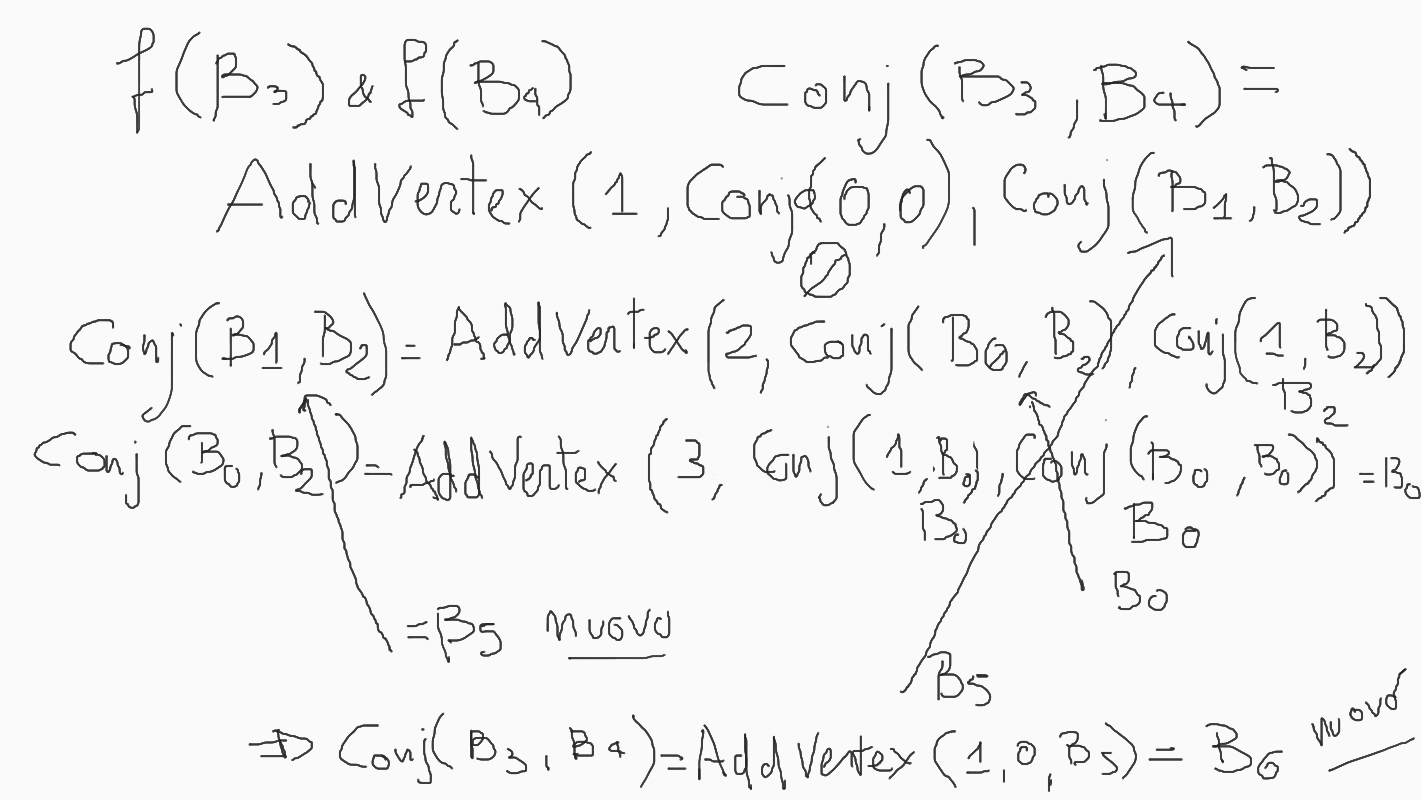 f(B3) & f(B4) Conj(B3, B4) =
AddVertex(1, Conj(0,0), Conj(B1, B2))
0
Conj(B1, B2) = AddVertex(2, Conj(B0, B2), Conj(1, B2))
B2
Conj(B0, B2) = AddVertex(3, Conj(1, B0), Conj(B0, B0)) = B0
B0 B0
B0
= B5 nuovo
B5
⇒ Conj(B3, B4) = AddVertex(1, 0, B5) = B6 nuovo